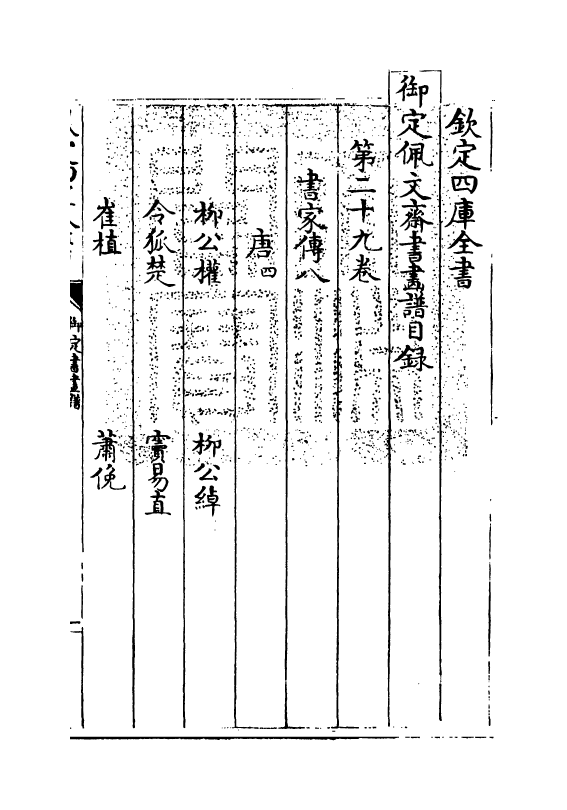 欽定四庫全書
御定佩文齋書畫譜目錄
第二十九卷
書家傳八
唐四
柳公權 柳公綽
令狐楚 竇易直
崔植 蕭俛
御定書畫譜